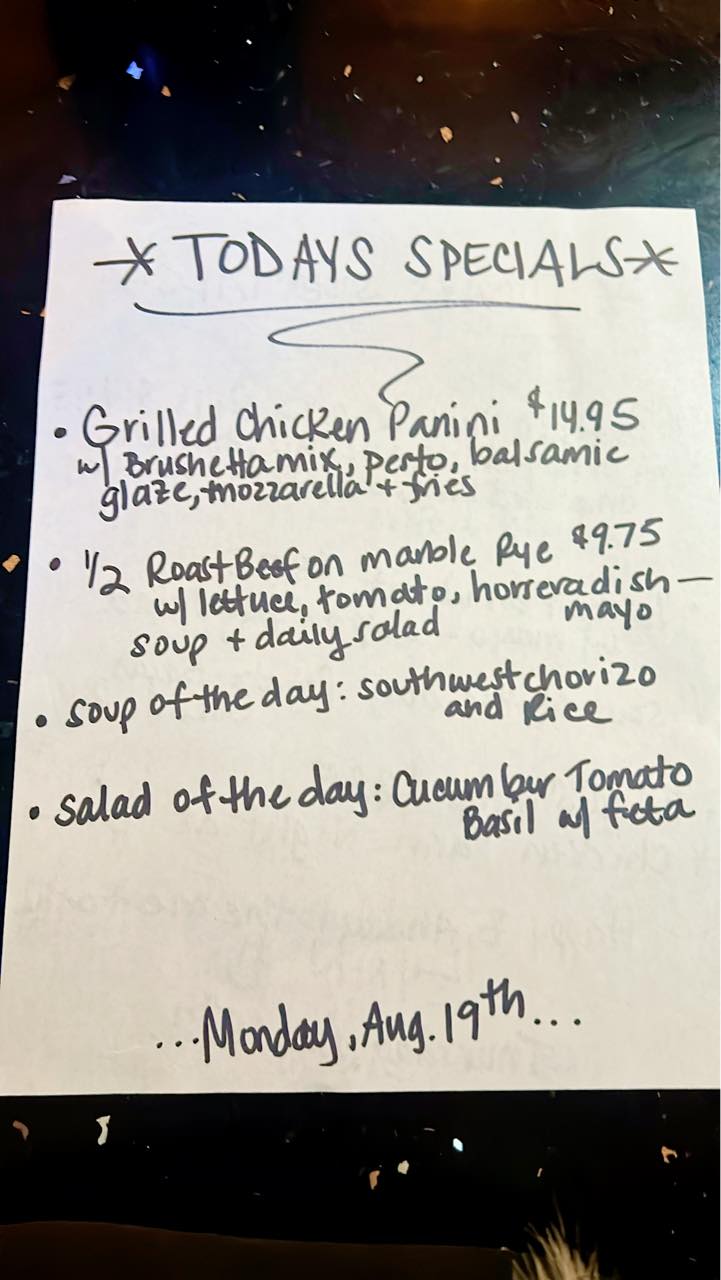 * TODAYS SPECIALS *
• Grilled Chicken Panini $14.95
w/ Brushetta mix, pesto, balsamic
glaze, mozzarella + fries
• 1/2 Roast Beef on marble Rye $9.75
w/ lettuce, tomato, horreradish –
mayo
soup + daily salad
• soup of the day: southwest chorizo
and Rice
• salad of the day: Cucumber Tomato
Basil w/ feta
...Monday, Aug. 19th...